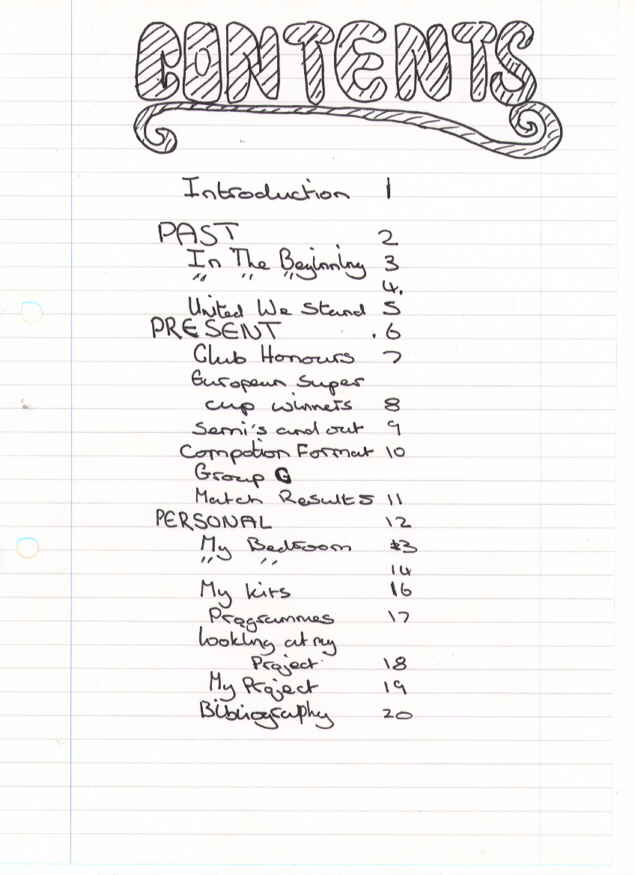 CONTENTS
Introduction 1
PAST 2
In The Beginning 3
" " " 4.
United We Stand 5
PRESENT . 6
Club Honours 7
European Super
cup winners 8
Semi's and out 9
Compotion Format 10
Group G
Match Results 11
PERSONAL 12
My Bedroom 13
" " 14
My kits 16
Programmes 17
looking at my
Project 18
My Project 19
Bibliography 20